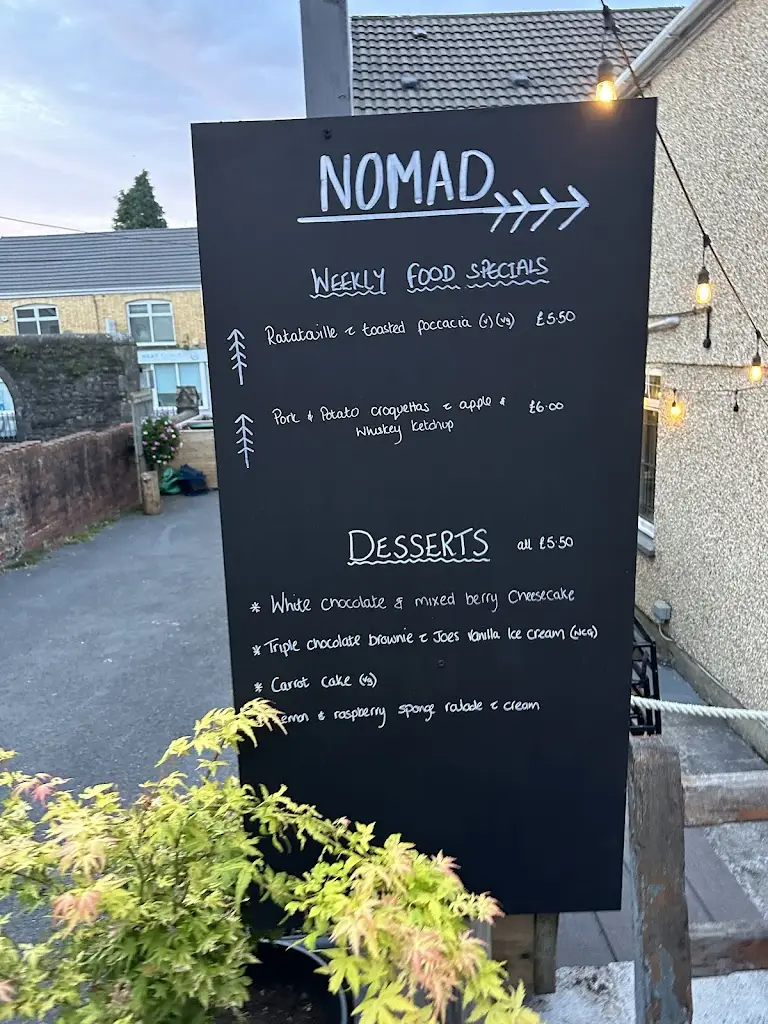 NOMAD
WEEKLY FOOD SPECIALS
Ratatouille c toasted foccacia (v) (vg) £5.50
Pork & Potato croquettas c apple & £6.00
Whiskey ketchup
DESSERTS all £5.50
* White chocolate & mixed berry Cheesecake
* Triple chocolate brownie c Joes Vanilla Ice Cream (NCG)
* Carrot cake (vg)
emon & raspberry sponge ralade c cream